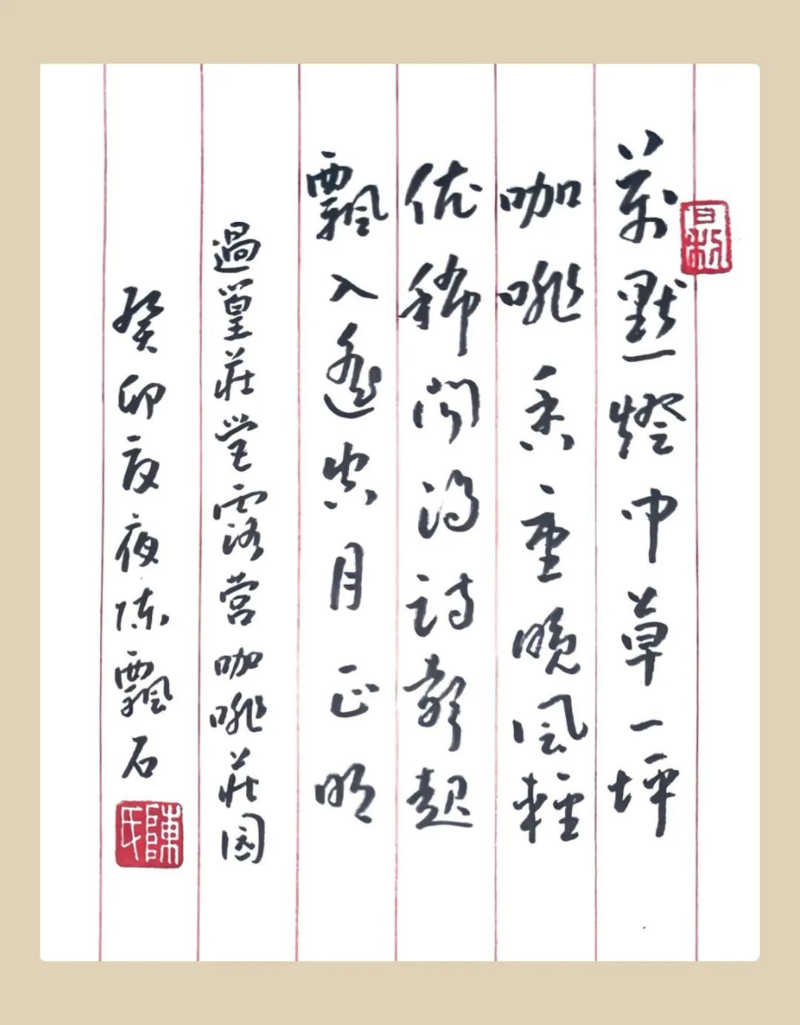 萬點燈中草一坪
咖啡香重晚風輕
依稀聞得詩聲起
飄入遙空月正明
過篁莊露營咖啡莊园
癸卯夏夜陈飄石
陳氏